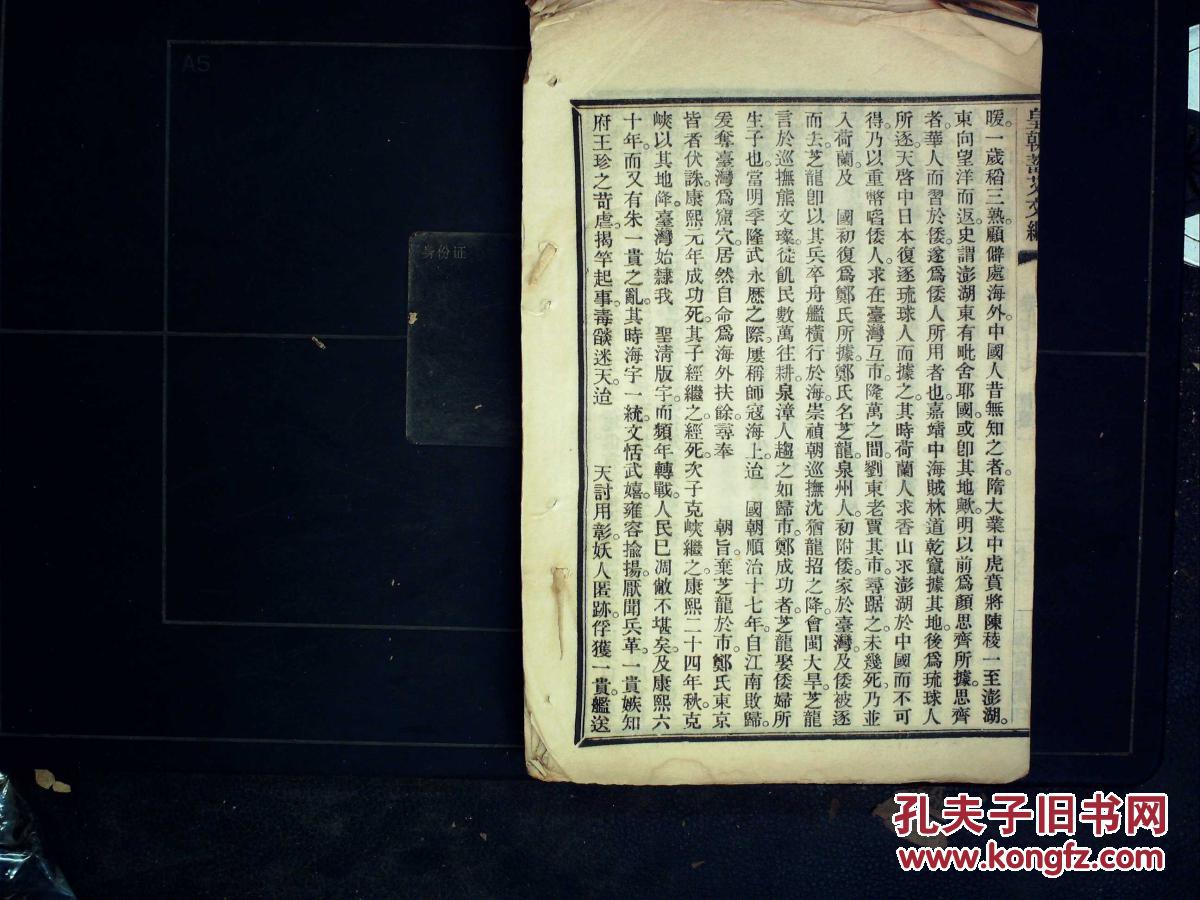 皇朝蓄艾文編
暖。一歲稻三熟。顧僻處海外。中國人昔無知之者。隋大業中虎賁將陳稜一至澎湖。
東向望洋而返。史謂澎湖東有毗舍耶國。或卽其地歟。明以前爲顏思齊所據。思齊
者。華人而習於倭。遂爲倭人所用者也。嘉靖中海賊林道乾竄據其地。後爲琉球人
所逐。天啓中日本復逐琉球人而據之。其時荷蘭人求香山求澎湖於中國而不可
得。乃以重幣啗倭人。求在臺灣互市。隆萬之間。劉東老賈其市。尋踞之。未幾死。乃並
入荷蘭。及　國初復爲鄭氏所據。鄭氏名芝龍。泉州人。初附倭。家於臺灣。及倭被逐
而去。芝龍卽以其兵卒舟艦橫行於海。崇禎朝巡撫沈猶龍招之降。會閩大旱。芝龍
言於巡撫熊文燦。徙飢民數萬往耕。泉漳人趨之如歸市。鄭成功者。芝龍娶倭婦所
生子也。當明季隆武永歷之際。屢稱師寇海上。迨　國朝順治十七年。自江南敗歸。
爰奪臺灣爲窟穴。居然自命爲海外扶餘。尋奉　　朝旨。棄芝龍於市。鄭氏東京
皆者伏誅。康熙元年成功死。其子經繼之。經死。次子克𡒉繼之。康熙二十四年秋。克
峽以其地降。臺灣始隸我　聖淸版宇。而頻年轉戰。人民已凋敝不堪矣。及康熙六
十年。而又有朱一貴之亂。其時海宇一統。文恬武嬉。雍容揄揚。厭聞兵革。一貴嫉知
府王珍之苛虐。揭竿起事。毒燄迷天。迨　　天討用彰。妖人匿跡。俘獲一貴。艦送
A5
身份证
孔夫子旧书网
www.kongfz.com